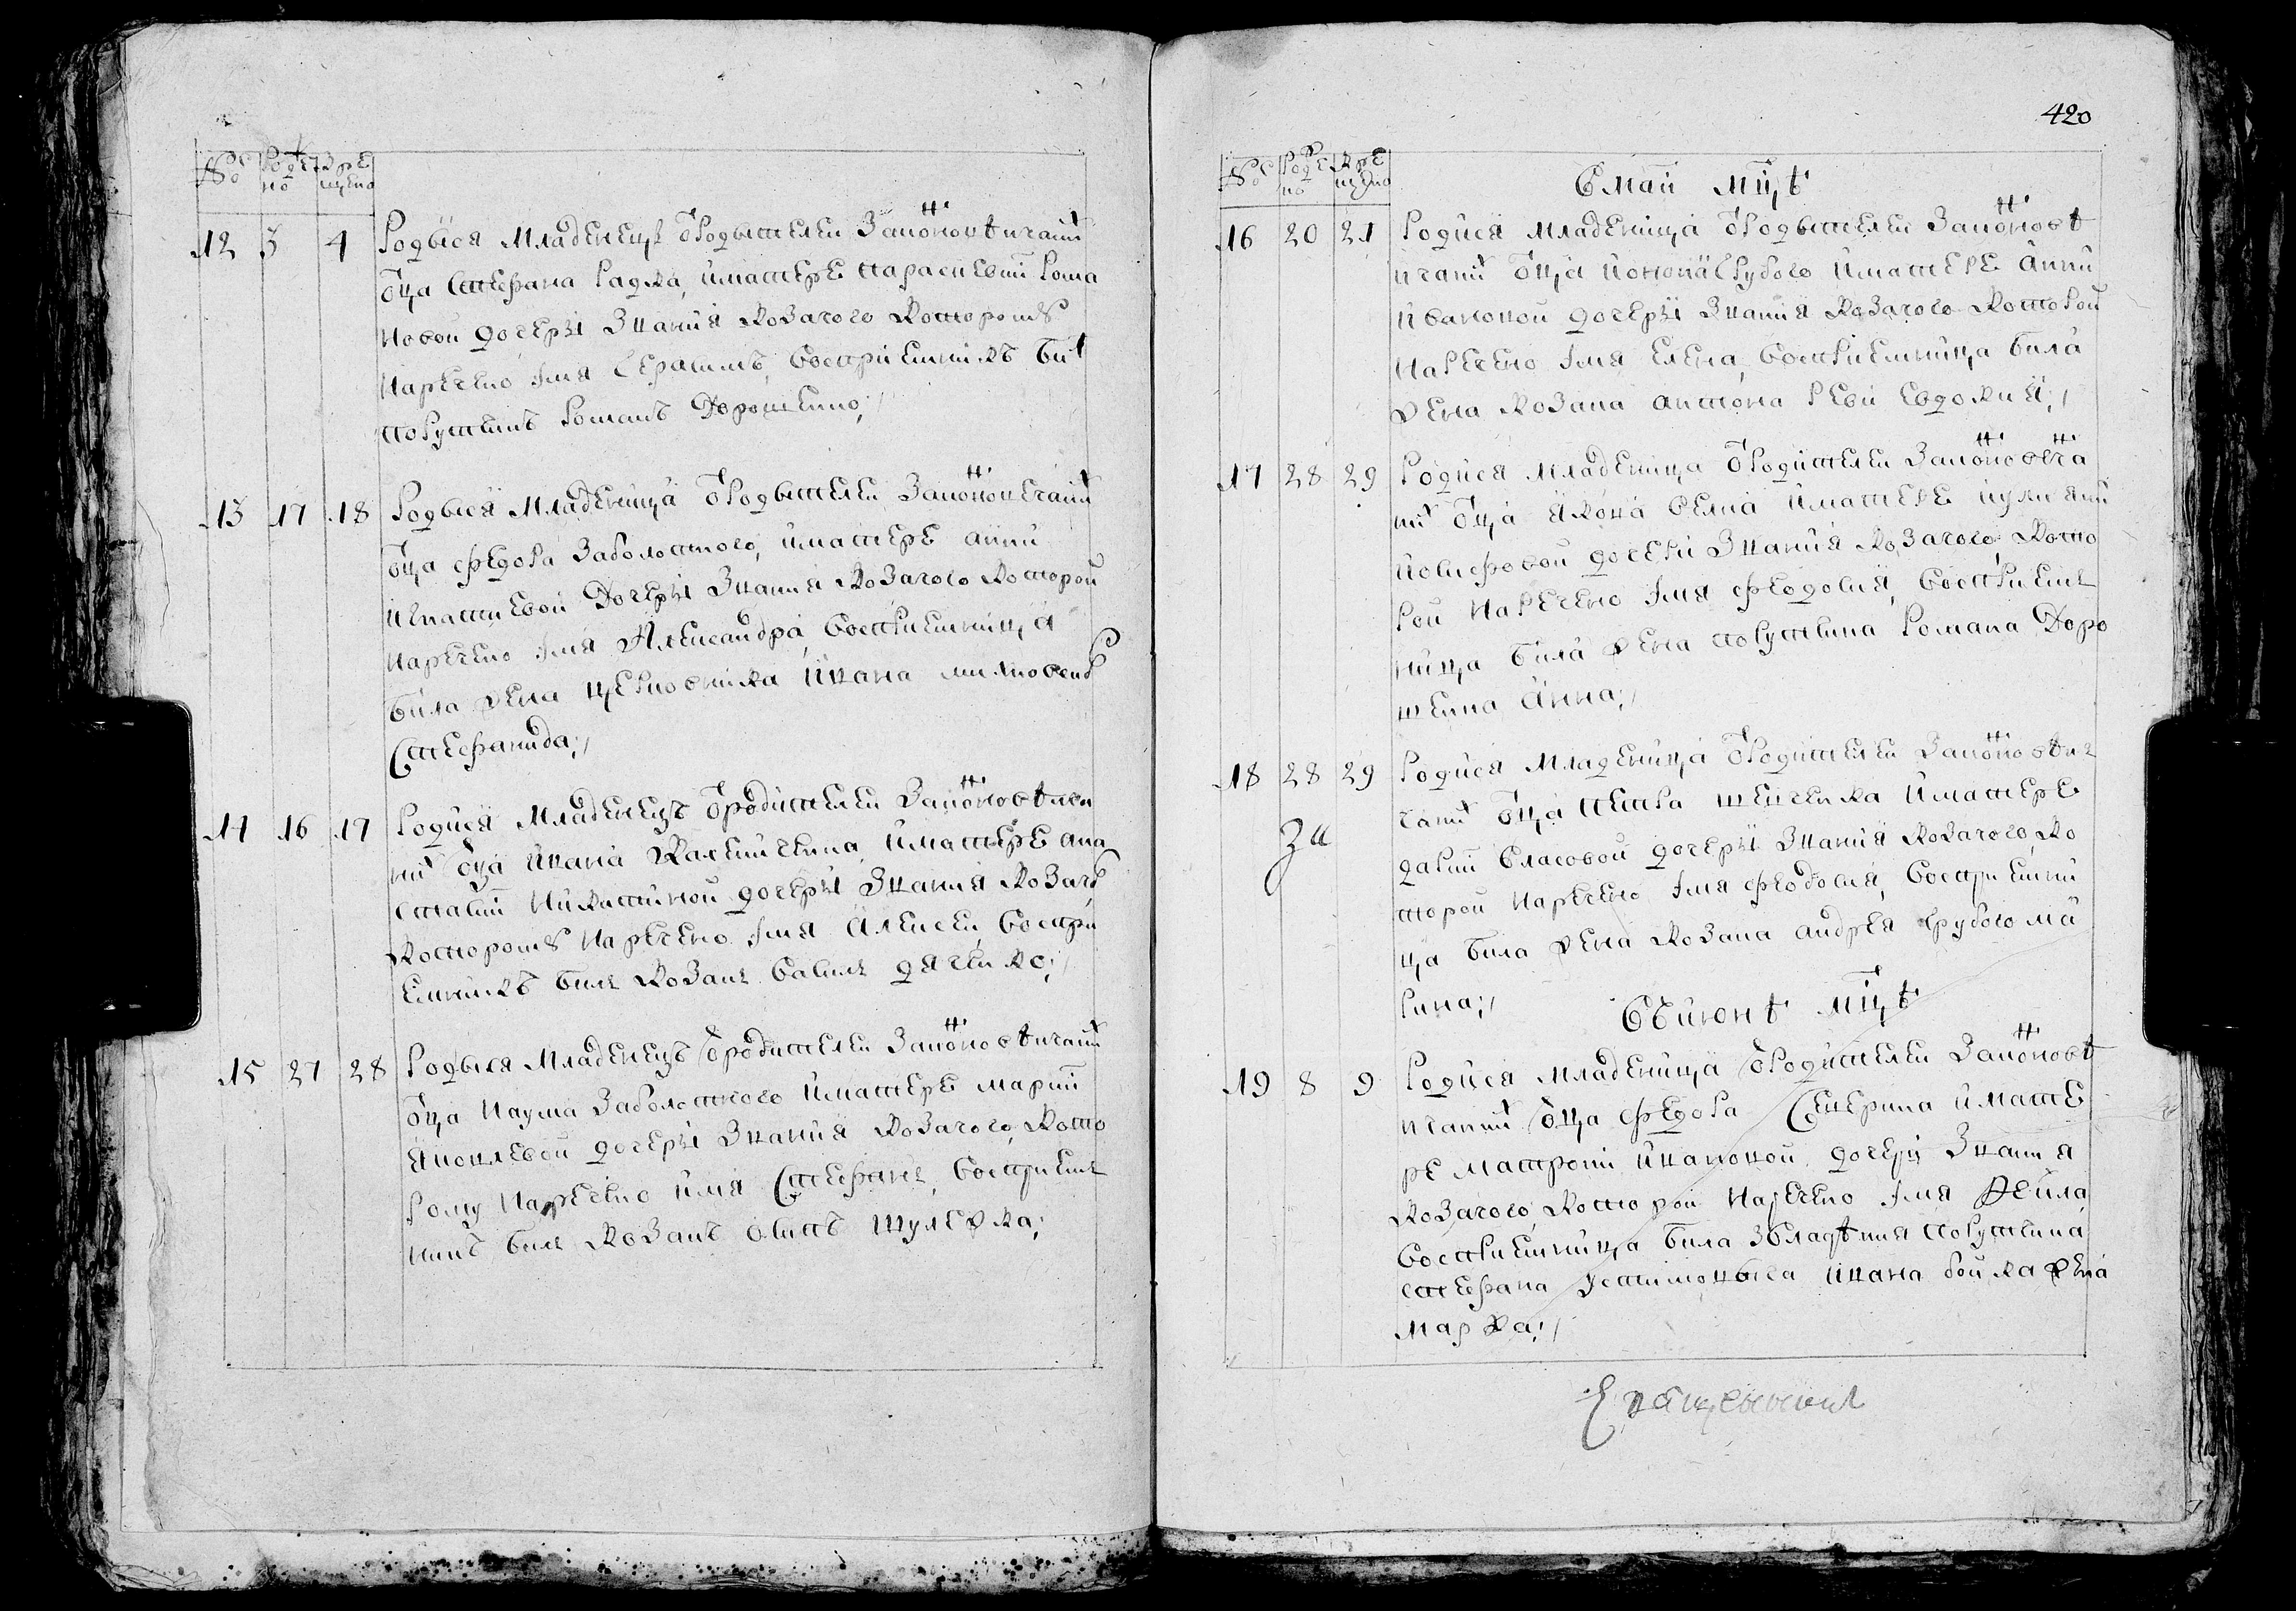 № Роде но Кре щено
12 3 4 Родвіся Младенецъ ѿ Родытелей Законовѣнчаних
ѿца Стефана Радка, иматере Параскевии Рома
новой дочери Званія Козачого Которомѹ
Наречено Имя Герасимъ, Восприемникъ билъ
Порутчикъ Романъ Дорошенко;
13 17 18 Родвіся Младеница ѿ Родытелей Законовенчаних
ѿца Федора Заболотного, иматере Анни
Игнатиевой Дочери Званія Козачого Которой
Наречено Имя Александра, Восприемница
била жена Ивана
Стефанида;
14 16 17 Родися Младенецъ ѿ родителей Законовѣнча
них ѿца Ивана иматере Ана
стасии Никитиной дочери Званія Козачого
Которомѹ Наречено Имя Алексей, Воспри
емникъ билъ Козакъ Василь дяченко;
15 27 28 Родвіся Младенецъ ѿ родителей Законовѣнчаних
ѿца Наума Заболотного иматере Марии
Яковлевой дочери Званія Козачого, Кото
рому Наречено имя Стефанъ, Восприем
никъ билъ Козакъ Осипъ Шулежка;
420
№ Роде но Кре щено
В Маи мцѣ
16 20 21 Родися Младеница ѿ Родытелей Законовѣ
нчаних ѿца Грубого иматере Анни
Ивановой дочери Званія Козачого Которой
Наречено Имя Елена, Восприемница била
жена Козака Антона Евдокия;
17 28 29 Родися Младеница ѿ Родителей Законовѣнча
них ѿца Якова иматере Иулияни
Иосифовой дочери Званія Козачого, Кото
рой Наречено Имя Феодосия, Восприем
ница била жена Порутчика Романа Доро
шенка Анна;
18 28 29 Родися Младеница ѿ Родителей Законовѣн
чаних ѿца Петра Шевченка иматере
дарии Власовой дочери Званія Козачого, Ко
торой Наречено Имя Феодосия, Восприемни
ца била жена Козака Андрея Грубого Ма
рина;
В июнѣ мцѣ
19 8 9 Родися Младеница ѿ Родителей Законовѣ
нчаних ѿца Федора иматe
ре Матрони Ивановой дочери Званія
Козачого, Которой Наречено Имя Фекла
Восприемница била Порутчика
Стефана Ивана Бойка жена
Марфа;